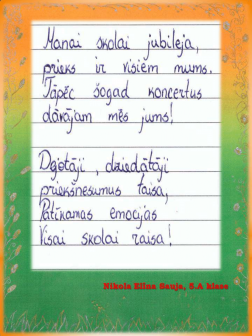 Manai skolai jubileja,
prieks ir visiem mums.
Tāpēc šogad koncertus
dāvājam mēs jums!
Dejotāji, dziedātāji
priekšnesumus taisa,
Patīkamas emocijas
Visai skolai raisa!
Nikola Elīna Gauja, 5.A klase